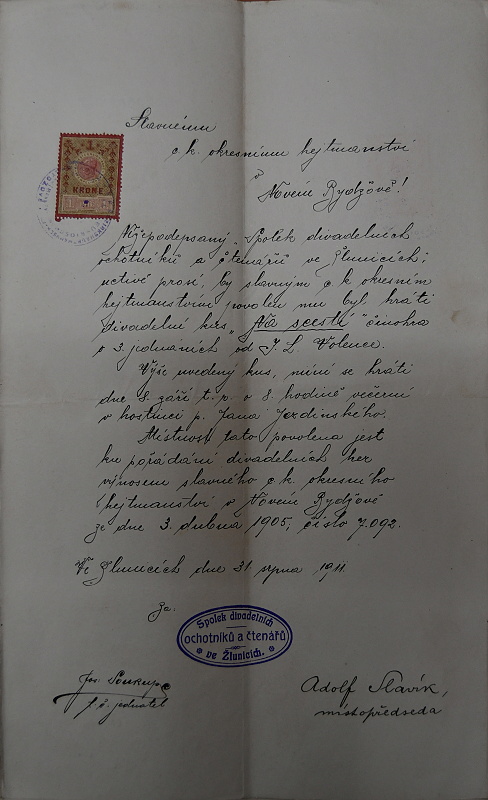 Slavnému
c. k. okresnímu hejtmanství
v
Novém Bydžově!
1
KRONE
Nížepodepsaný „Spolek divadelních
ochotníků a čtenářů ve Žlunicích;
uctivě prosí, by slavným c. k. okresním
hejtmanstvím povolen mu byl hráti
divadelní kus „Na scestí" činohra
o 3. jednáních od J. L. Volence.
Výše uvedený kus, míní se hráti
dne 8. září t. r. o 8. hodině večerní
v hostinci p. Jana Jezdinského.
Místnost tato povolena jest
ku pořádání divadelních her
výnosem slavného c. k. okresního
hejtmanství v Novém Bydžově
ze dne 3. dubna 1905, číslo 7.092.
Ve Žlunicích dne 31. srpna 1911.
Za:
Spolek divadelních
ochotníků a čtenářů
ve Žlunicích.
Jos. Soukup
t. č. jednatel
Adolf Slavík,
místopředseda